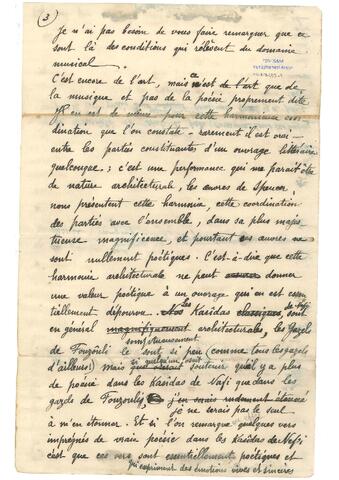 (3)
Je n'ai pas besoin de vous faire remarquer que ce
sont là des conditions qui relèvent du domaine
musical.
C'est encore de l'art, mais ce n'est de l'art que de
la musique et pas de la poésie proprement dite
Il en est de même pour cette harmonieuse coor-
dination que l'on constate - rarement il est vrai -
entre les parties constituantes d'un ouvrage littéraire
quelconque ; c'est une performance qui me paraît être
de nature architecturale, les œuvres de Spencer, nous
nous présentent cette harmonie, cette coordination
des parties avec l'ensemble, dans sa plus majes
tueuse magnificence, et pourtant ces œuvres ne
sont nullement poétiques. C'est-à-dire que cette
harmonie architecturale ne peut donner
une valeur poétique à un ouvrage qui en est essen
tiellement dépourvu. Les Kasîdas classiques, de Nefi sont
en général magnifiquement architecturales, les gazels
somptueusement
de Fouzoûli le sont si peu (comme tous les gazels
d'ailleurs!) Mais si quelqu'un venait soutenir qu'il y a plus
de poésie dans les Kasîdas de Nafi que dans les
gazels de Fouzouli, j'en serais rudement étonné
je ne serais pas le seul
à m'en étonner. Et si l'on remarque quelques vers
imprégnés de vraie poésie dans les Kasîdas de Nefi
c'est que ces vers sont essentiellement poétiques et
qui expriment des émotions vives et sincères